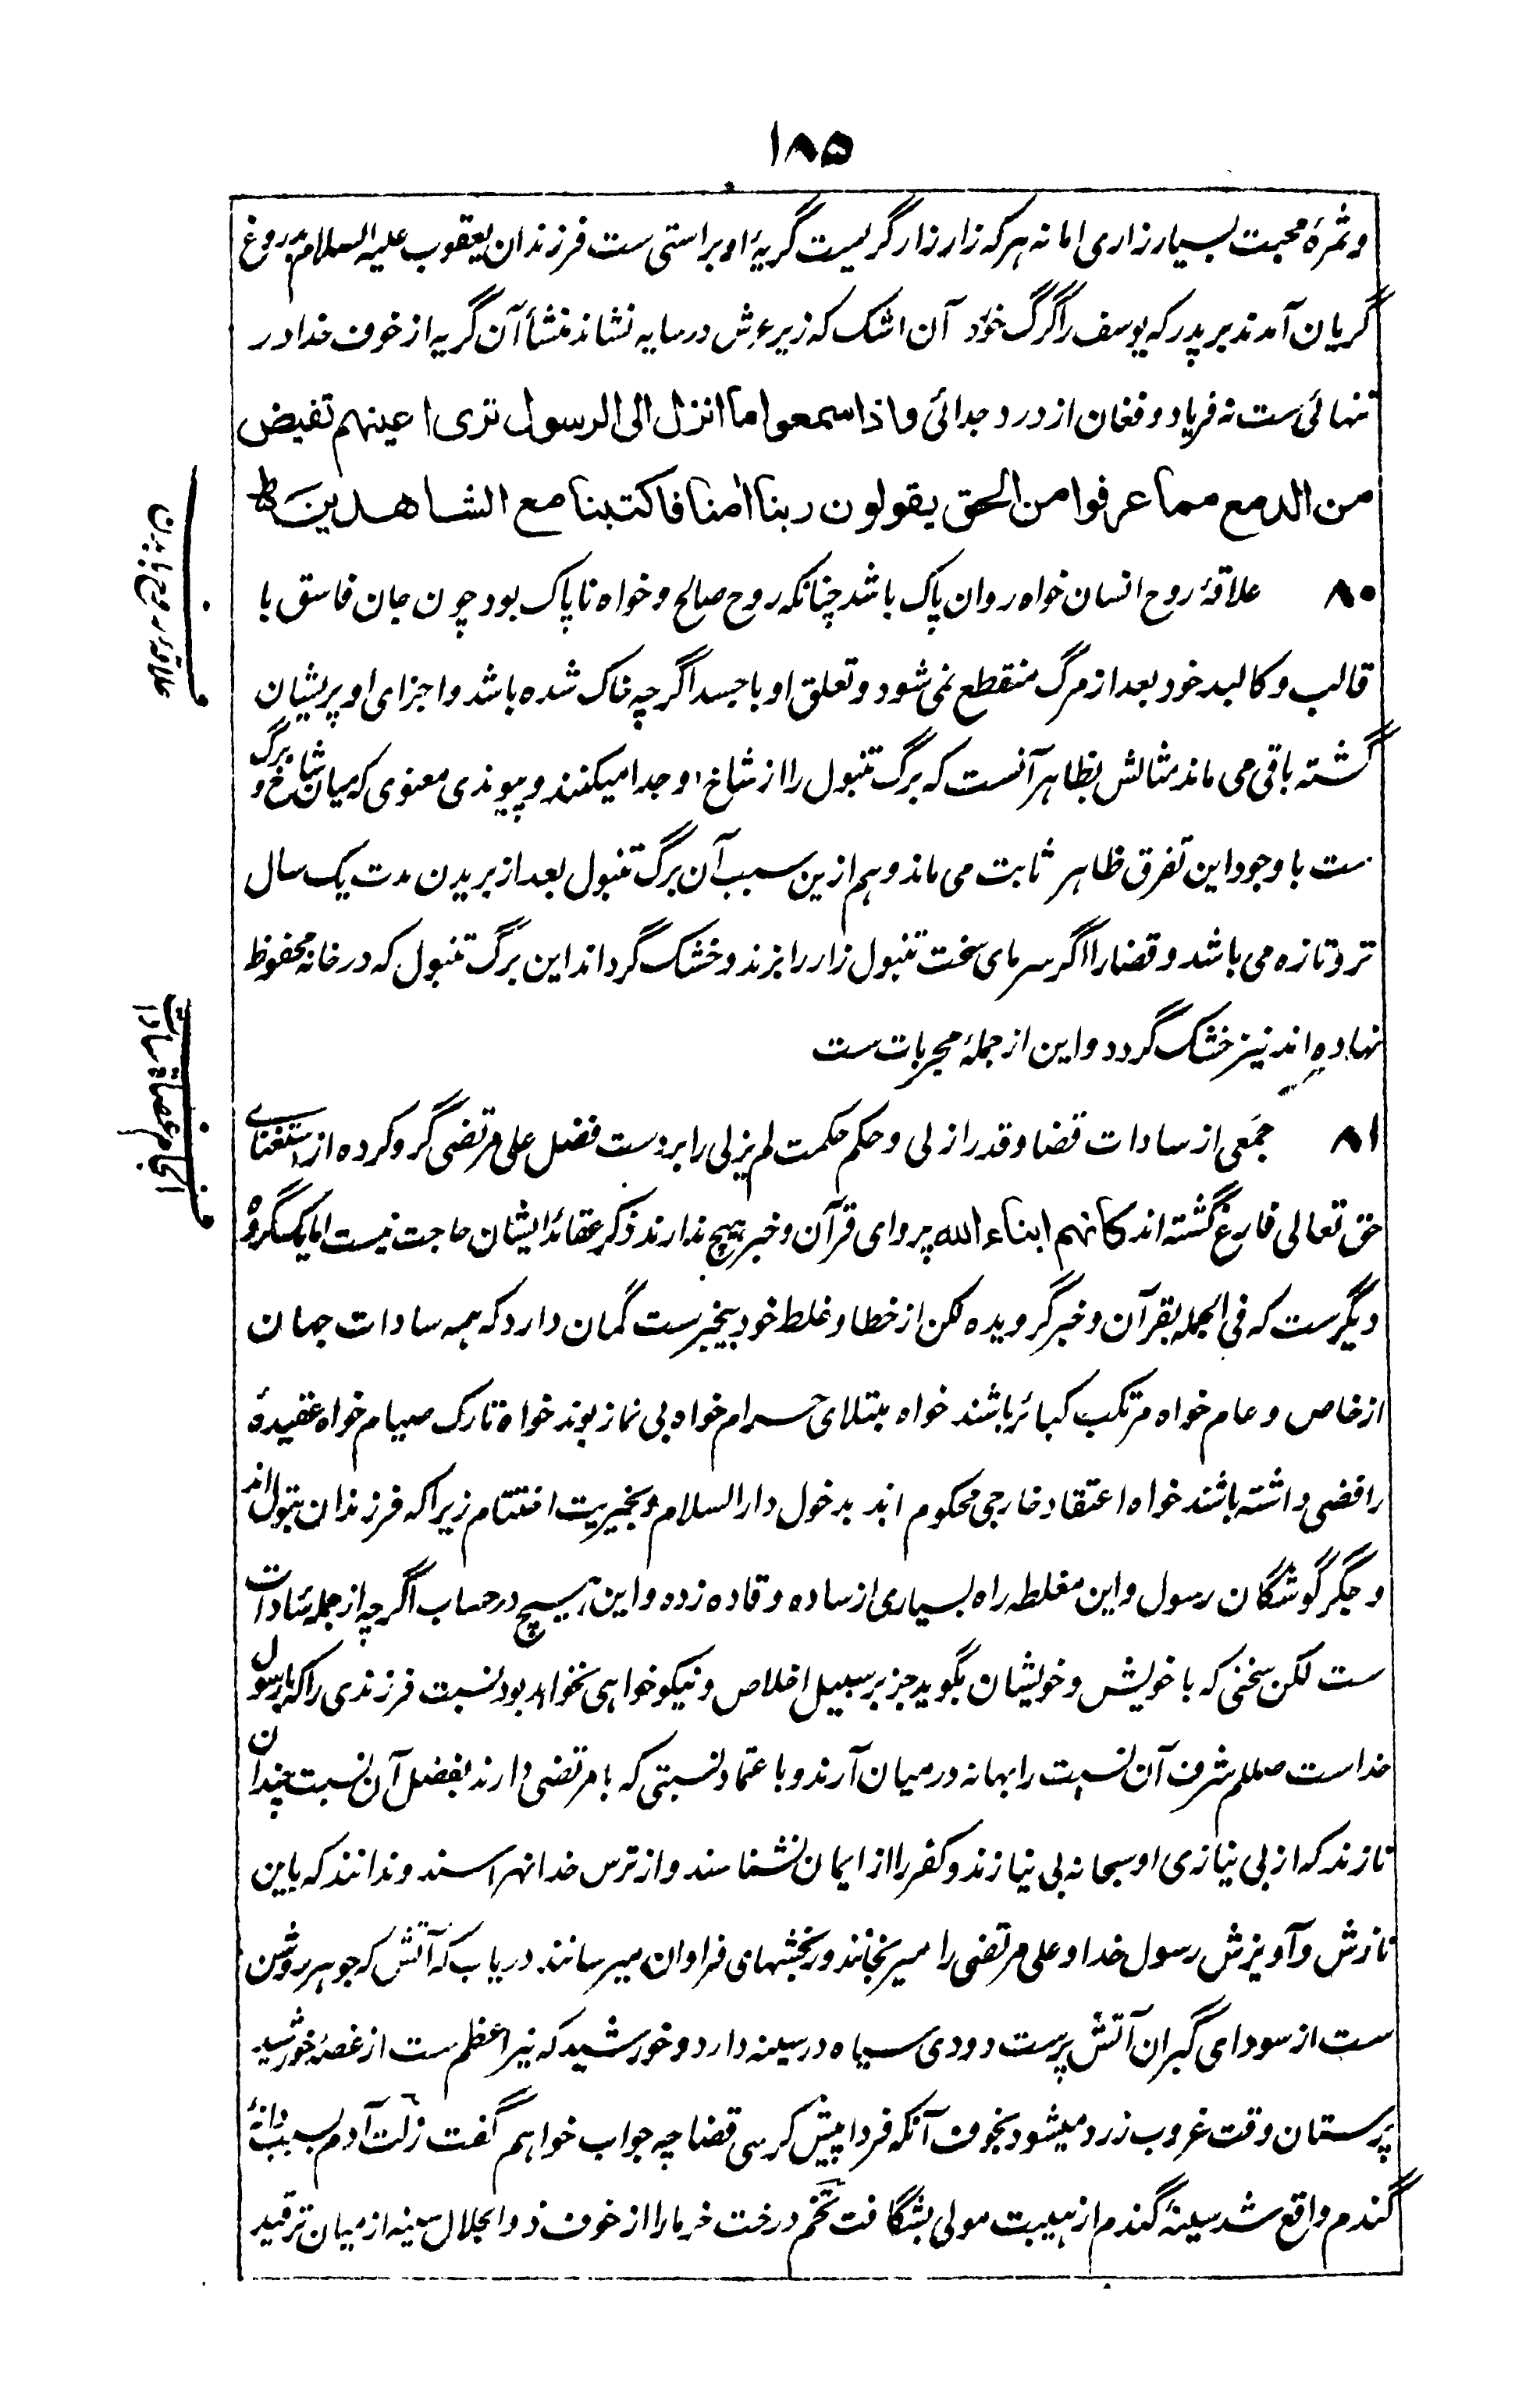 ۱۸۵
و ثمرهٔ محبت بسیار زاری اما نه هر که زار زار گریست گریهٔ او براستی ست فرزندان یعقوب علیه السلام بدروغ
گریان آمدند بر پدر که یوسف را گرگ خورد آن اشک که زیر عرش در سایه نشاند منشأ آن گریه از خوف خدا در
تنهائی ست نه فریاد و فغان از درد جدائی و اذا سمعوا ما انزل الی الرسول تری اعینهم تفیض
من الدمع مما عرفوا من الحق یقولون ربنا امنا فاکتبنا مع الشاهدین ط
۸۰ علاقهٔ روح انسان خواه روان پاک باشد چنانکه روح صالح و خواه ناپاک بود چون جان فاسق با
علاقهٔ روح با بدن
قالب و کالبد خود بعد از مرگ منقطع نمی شود و تعلق او با جسد اگر چه خاک شده باشد و اجزای او پریشان
گشته باقی می ماند مثالش بظاهر آنست که برگ تنبول را از شاخ او جدا میکنند و پیوندی معنوی که میان شاخ و برگ
ست با وجود این تفرق ظاهر ثابت می ماند و هم ازین سبب آن برگ تنبول بعد از بریدن مدت یک سال
تر و تازه می باشد و قضا را اگر سرمای سخت تنبول زار را بزند و خشک گرداند این برگ تنبول که در خانه محفوظ
نهاده اند نیز خشک گردد و این از جملهٔ مجربات ست
۸۱ جمعی از سادات قضا و قدر ازلی و حکم حکمت لم یزلی را بر دست فضل علی مرتضی گرو کرده از استغنای
حق تعالی فارغ گشته اند کانهم ابناء الله پروای قرآن و خبر هیچ ندارند ذکر عقائد ایشان حاجت نیست اما یک گروه
دیگرست که فی الجمله بقرآن و خبر گرویده لکن از خطا و غلط خود بیخبرست گمان دارد که همه سادات جهان
از خاص و عام خواه مرتکب کبائر باشند خواه مبتلای حرام خواه بی نماز بوند خواه تارک صیام خواه عقیدهٔ
رافضی داشته باشند خواه اعتقاد خارجی محکوم اند بدخول دار السلام و بخیریت اختتام زیرا که فرزندان بتول اند
و جگر گوشگان رسول و این مغلطه راه بسیاری از ساده و قاده زده و این هیچ در حساب اگر چه از جمله سادات
ست لکن سخنی که با خویش و خویشان بگوید جز بر سبیل اخلاص و نیکو خواهی نخواهد بود نسبت فرزندی را که با رسول
خداست صللم شرف آن نسبت را بهانه در میان آرند و باعتماد نسبتی که با مرتضی دارند بفضل آن نسبت چندان
نازند که از بی نیازی او سبحانه بی نیازند و کفر را از ایمان نشناسند و از ترس خدا نهراسند و ندانند که باین
نازش و آویزش رسول خدا و علی مرتضی را میرنجانند و رنجشهای فراوان میرسانند دریاب که آتش که جوهر روشن
ست از سودای گبران آتش پرست دودی سیاه در سینه دارد و خورشید که نیر اعظم ست از غصهٔ خورشید
پرستان وقت غروب زرد میشود بخوف آنکه فردا پیش کرسی قضا چه جواب خواهم گفت زلت آدم بسبب دانهٔ
گندم واقع شد سینهٔ گندم از هیبت مولی بشگافت تخم درخت خرما را از خوف ذو الجلال سینه از میان ترقید